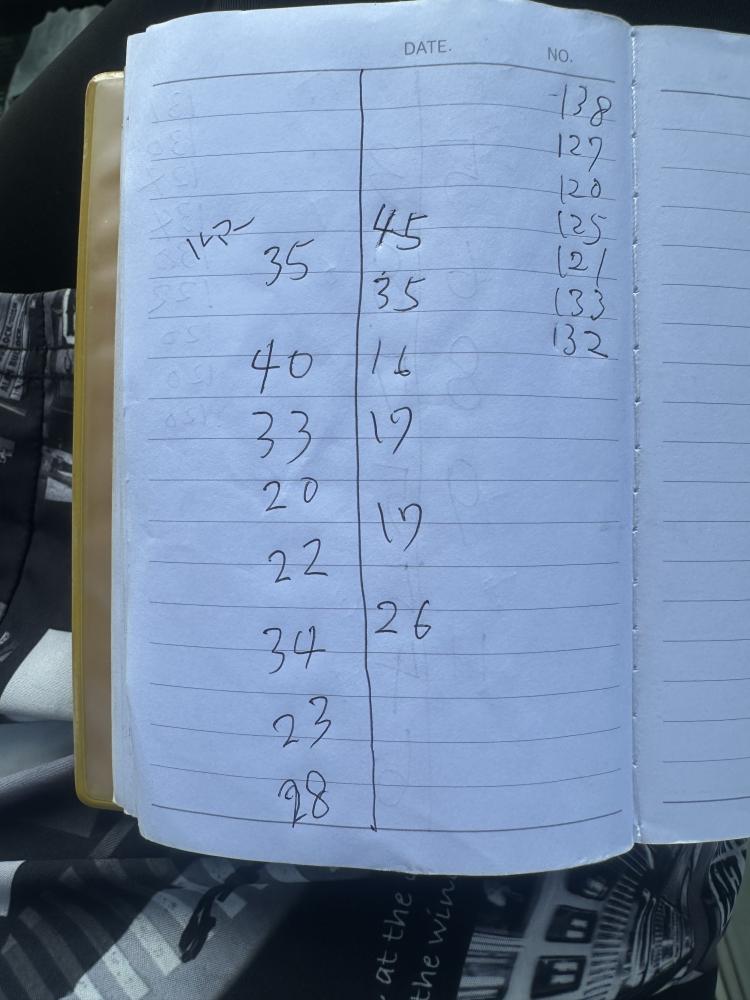 DATE. NO.
138
127
120
125
121
133
132
ルアー
35
40
33
20
22
34
23
28
45
35
16
17
17
26
at the
the win